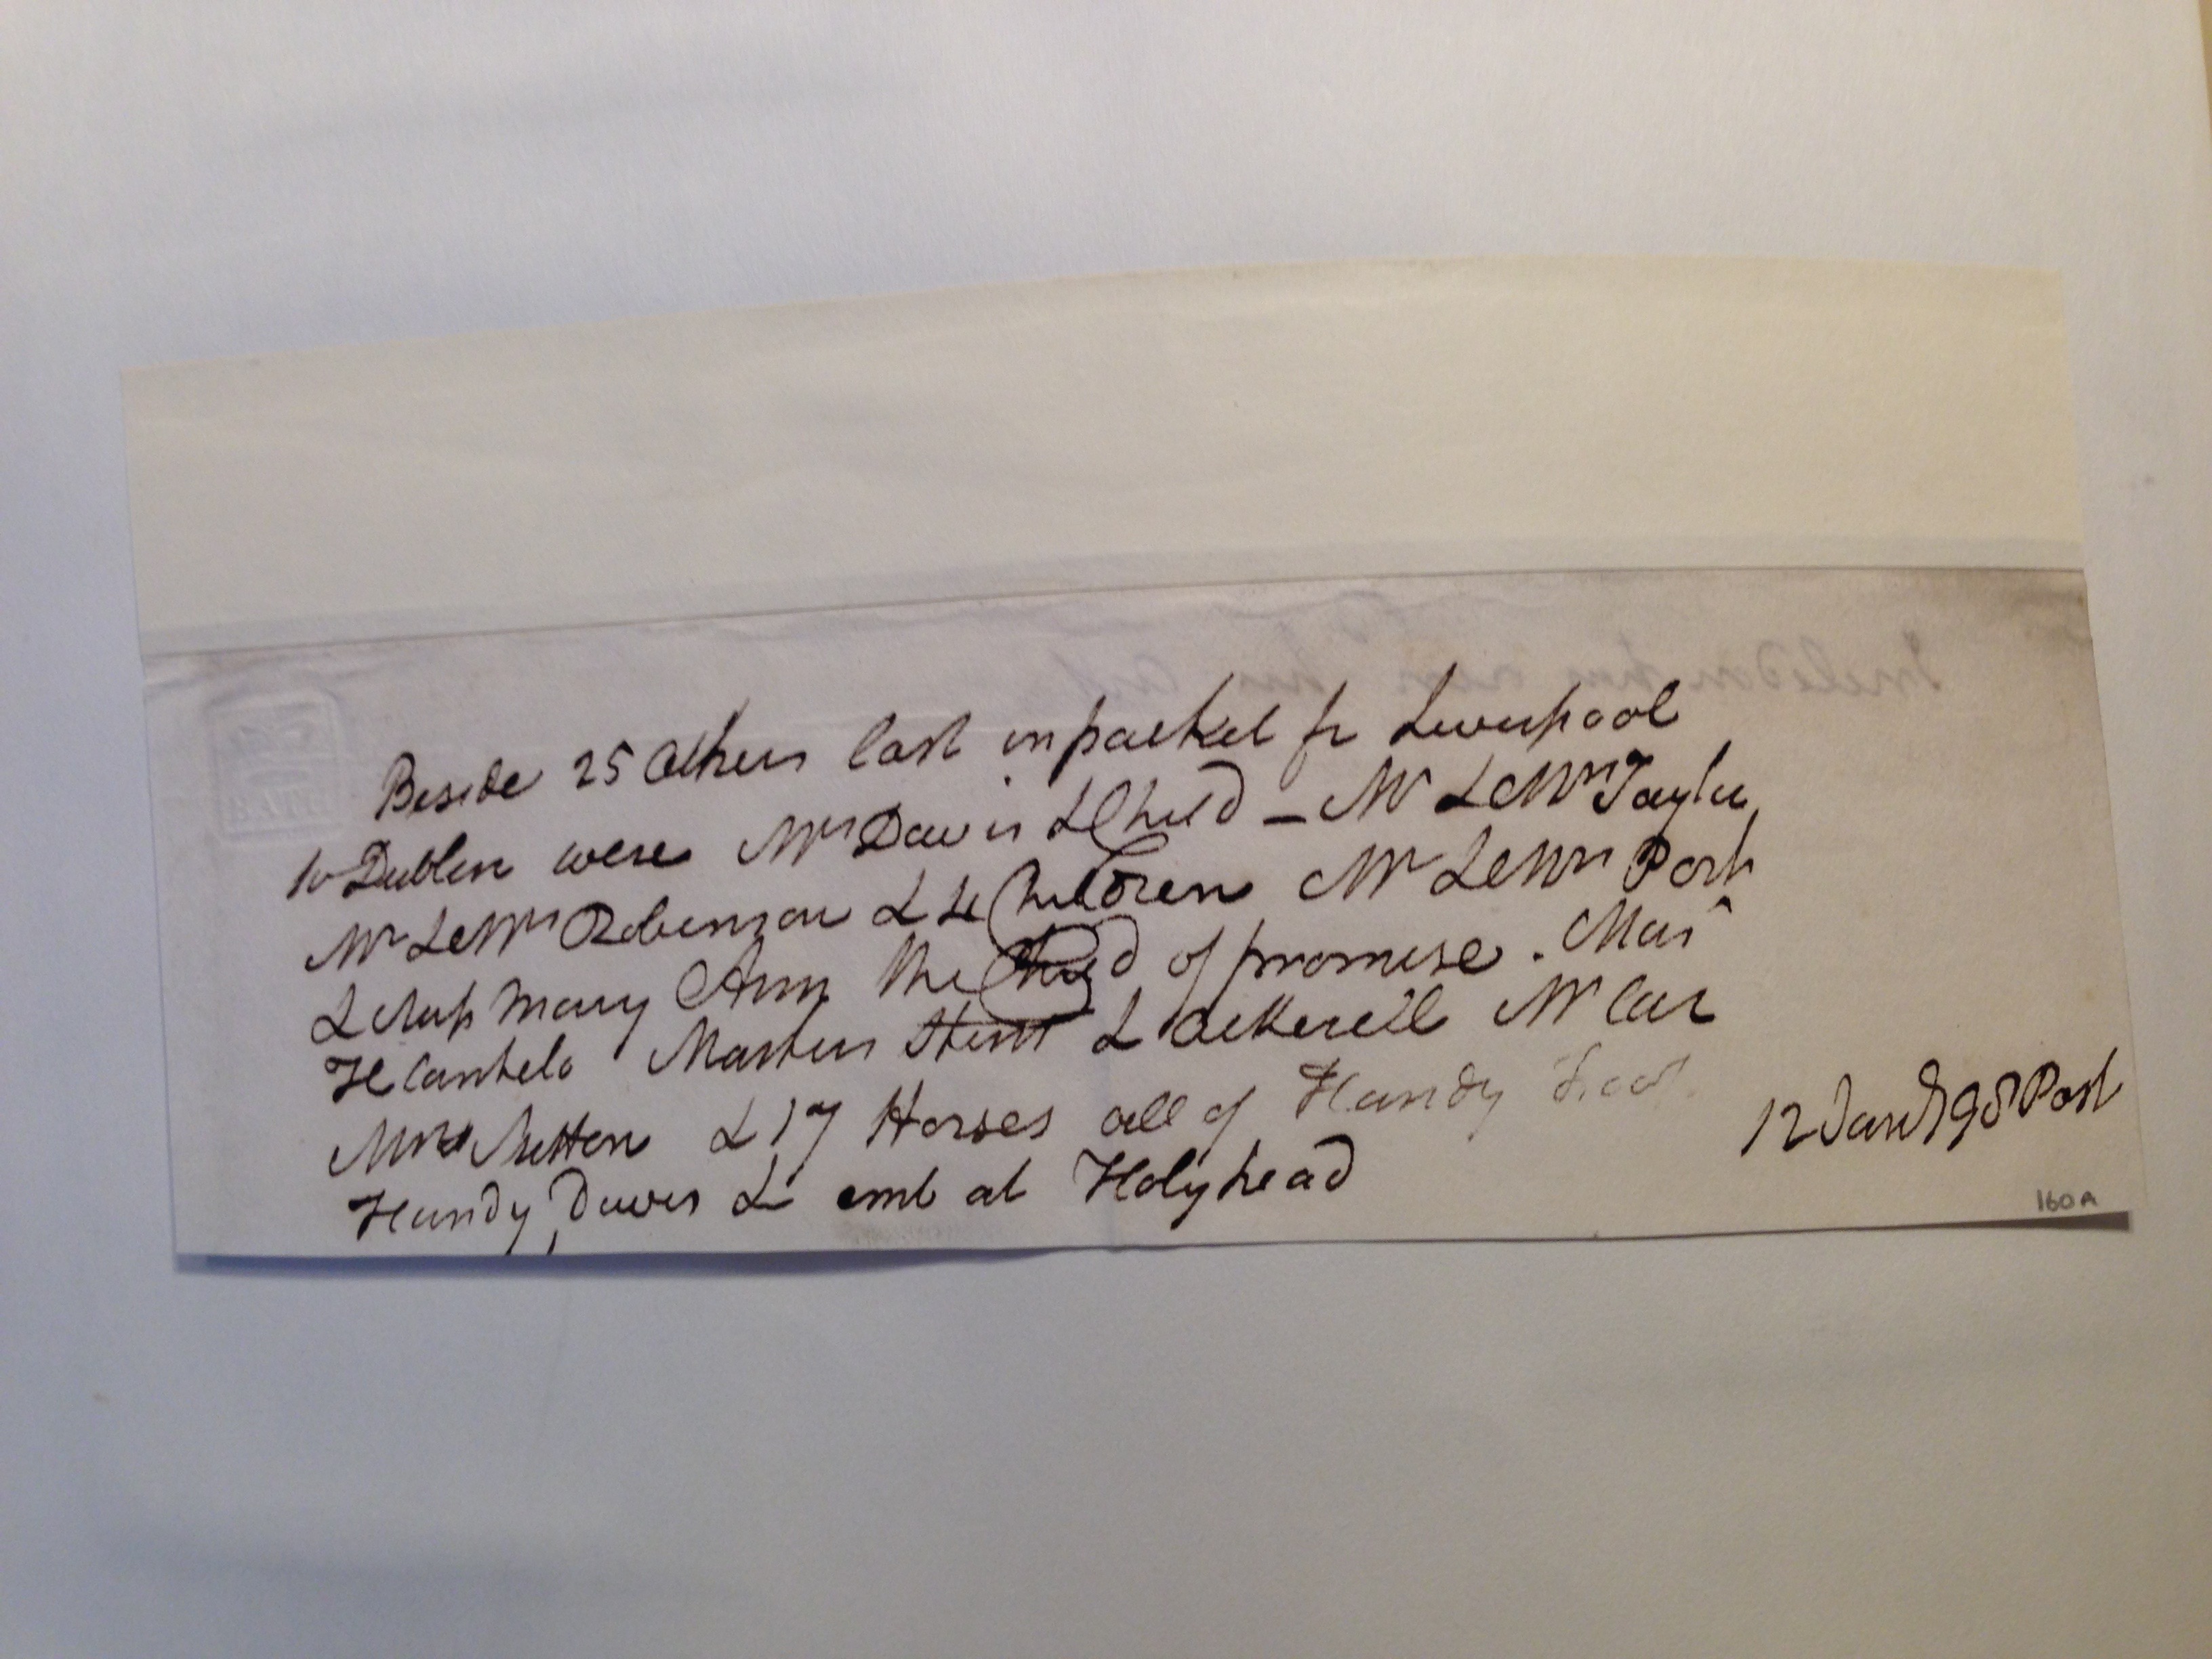 Beside 25 others lost in packet fr Liverpool
to Dublin were Mrs Davis & Child – Mr & Mrs Taylor
Mr & Mrs Robinson & Children Mr & Mrs
& Miss Mary Ann the Child of promise. Mas
H Cantelo Masters & Mr Car
Mrs Sutton & 17 Horses all of Handy
Handy, Davis & emb at Holyhead
12 Jany 98 Post
160A
BATH